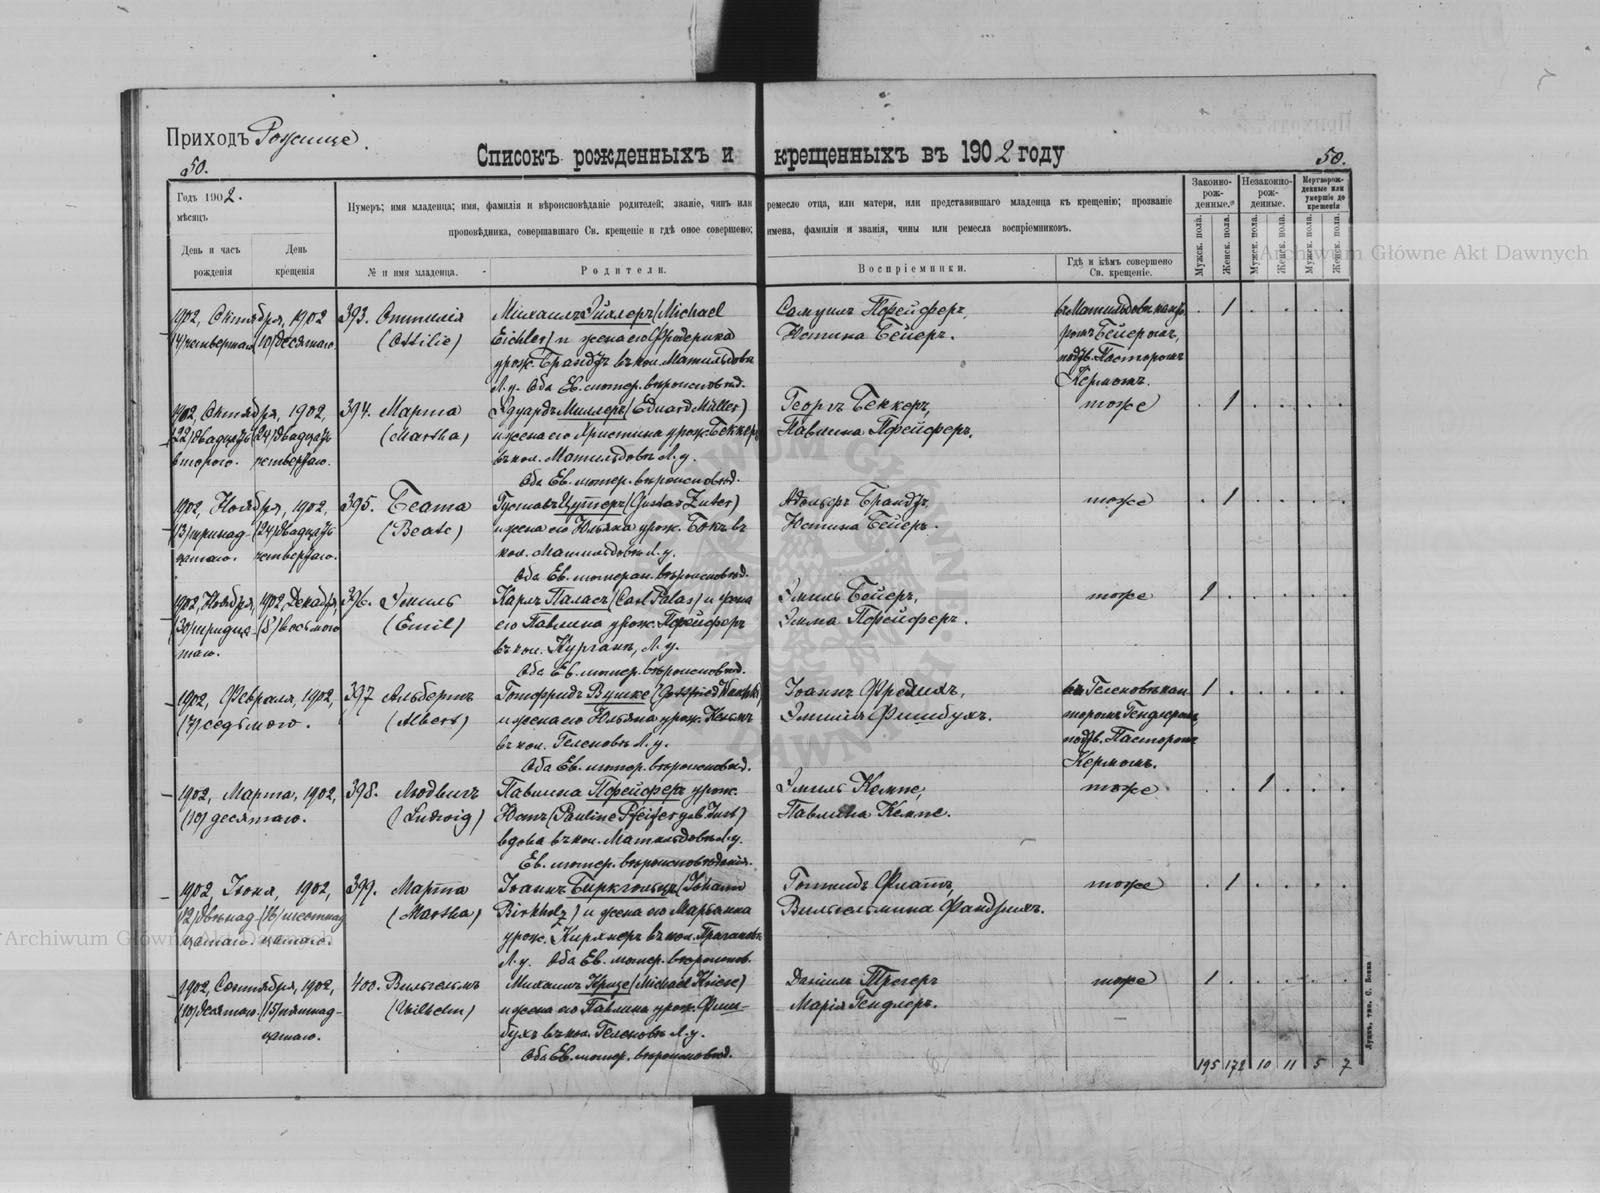 Приходъ Рожище.
50.
Списокъ рожденныхъ и крещенныхъ въ 1902 году
50.
Годъ 1902.
мѣсяцъ
День и часъ рожденія
День крещенія
Нумеръ; имя младенца; имя, фамилія и вѣроисповѣданіе родителей; званіе, чинъ или ремесло отца, или матери, или представившаго младенца къ крещенію; прозваніе
проповѣдника, совершавшаго Св. крещеніе и гдѣ оное совершено; имена, фамиліи и званія, чины или ремесла воспріемниковъ.
№ и имя младенца.
Родители.
Воспріемники.
Гдѣ и кѣмъ совершено Св. крещеніе.
Законно-рож-денные.
Незаконно-рож-денные.
Мертворож-денные или умершіе до крещенія
Мужск. пола.
Женск. пола.
Мужск. пола.
Женск. пола.
Мужск. пола.
Женск. пола.
Archiwum Główne Akt Dawnych
1902, Октября, 1902
(4) четвертаго (10) десятаго
393. Оттилія
(Ottilie)
Михаилъ Эйхлеръ (Michael
Eichler) и жена его Фридерика
урож. Брандтъ въ кол. Матильдовъ
Л. у. Оба Ев. лютер. вѣроисповѣд.
Самуилъ Пфейферъ,
Юстина Бейеръ.
въ Матильдовъ кант.
ромъ Бейеромъ,
подтв. Пасторомъ
Кермомъ.
1902, Октября, 1902,
(22) двадцать (24) двадцать
второго. четвертаго.
394. Марта
(Martha)
Эдуардъ Миллеръ (Eduard Müller)
и жена его Христина урож. Беккеръ
въ кол. Матильдовъ Л. у.
Оба Ев. лютер. вѣроисповѣд.
Георгъ Беккеръ,
Павлина Пфейферъ.
тоже
1902, Ноября, 1902,
(13) тринад- (24) двадцать
цатаго. четвертаго.
395. Беата
(Beate)
Густавъ Цутеръ (Gustav Zuter)
и жена его Юльяна урож. Бокъ въ
кол. Матильдовъ Л. у.
Оба Ев. лютеран. вѣроисповѣд.
Адольфъ Брандтъ,
Юстина Бейеръ.
тоже
1902, Ноября, 1902, Декабря,
(30) тридца- (8) восьмого
таго.
396. Эмиль
(Emil)
Карлъ Паласъ (Carl Palas) и жена
его Павлина урож. Пфейферъ
въ кол. Курганъ, Л. у.
Оба Ев. лютер. вѣроисповѣд.
Эмиль Бейеръ,
Эмма Пфейферъ.
тоже
1902, Февраля, 1902,
(7) седьмого.
397 Альбертъ
(Albert)
Готфридъ Вушке (Gottfried
и жена его Юльяна урож.
въ кол. Геленовъ Л. у.
Оба Ев. лютер. вѣроисповѣд.
Іоаннъ Фредихъ,
Эмилія Фишбухъ.
въ Геленовъ кан-
торомъ Гендлеромъ,
подтв. Пасторомъ
Кермомъ.
1902, Марта, 1902,
(10) десятаго.
398. Людвигъ
(Ludwig)
Павлина Пфейферъ урож.
Юстъ (Pauline Pfeifer geb. Just)
вдова въ кол. Матильдовъ Л. у.
Ев. лютер. вѣроисповѣданія.
Эмиль Кемпе,
Павлина Кемпе.
тоже
1902, Іюня, 1902,
(12) двѣнад- (16) шестнад-
цатаго. цатаго.
399. Марта
(Martha)
Іоаннъ Биркгольцъ (Johann
Birkholz) и жена его Марьанна
урож. Киржнеръ въ кол.
Л. у. Оба Ев. лютер. вѣроисповѣд.
Готлибъ Флатъ,
Вильгельмина Фандрихъ.
тоже
1902, Сентября, 1902,
(10) десятаго. (15) пятнад-
цатаго.
400. Вильгельмъ
(Wilhelm)
Михаилъ Кризе (Michael Kriese)
и жена его Павлина урож. Фиш-
бухъ въ кол. Геленовъ Л. у.
Оба Ев. лютер. вѣроисповѣд.
Даніилъ Трегеръ
Марія Гендлеръ.
тоже
195 172 10 11 5 7
Луцкъ, тип. С. Бокка
Archiwum Główne Akt Dawnych